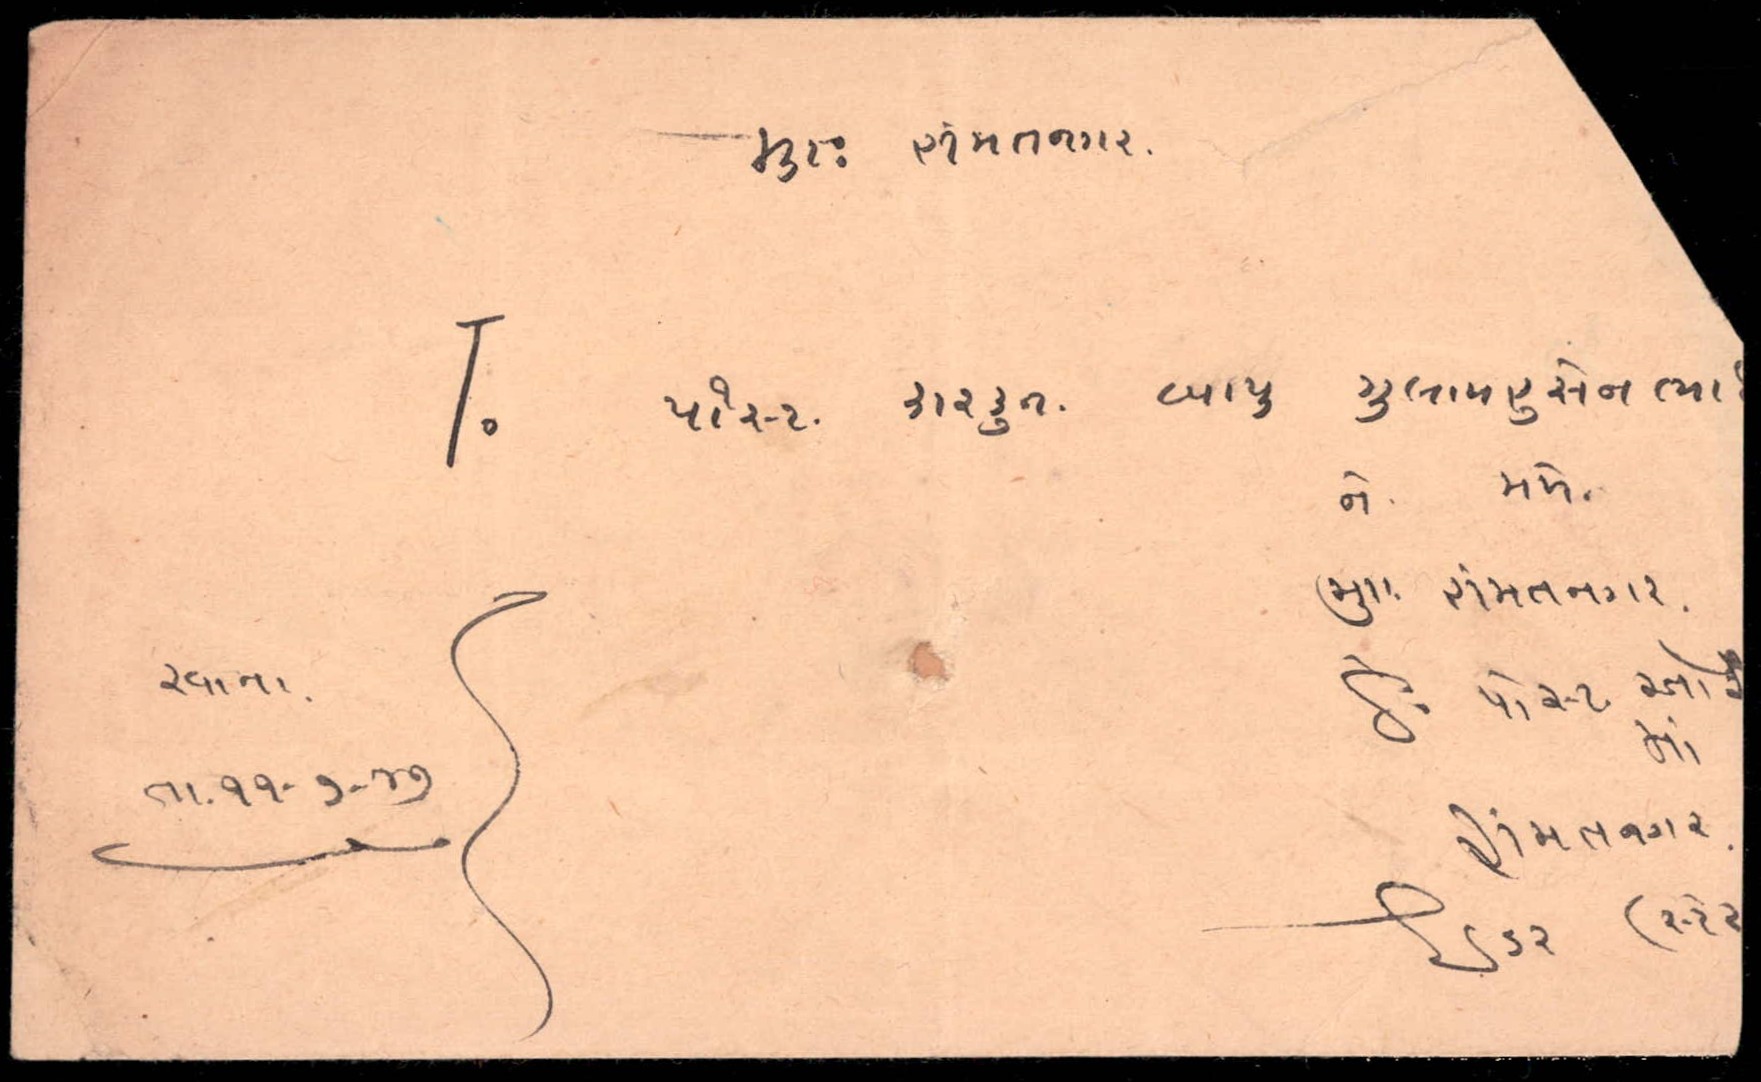 મુઃ હીંમતનગર.
T. પોસ્ટ. કારકુન. બાપુ ગુલામહુસેન
ને. મળે.
મુ. હીંમતનગર.
ઠે. પોસ્ટ
માં
હીંમતનગર.
ઈડર (સ્ટેટ
રવાના.
તા. ૧૧-૭-૪૭